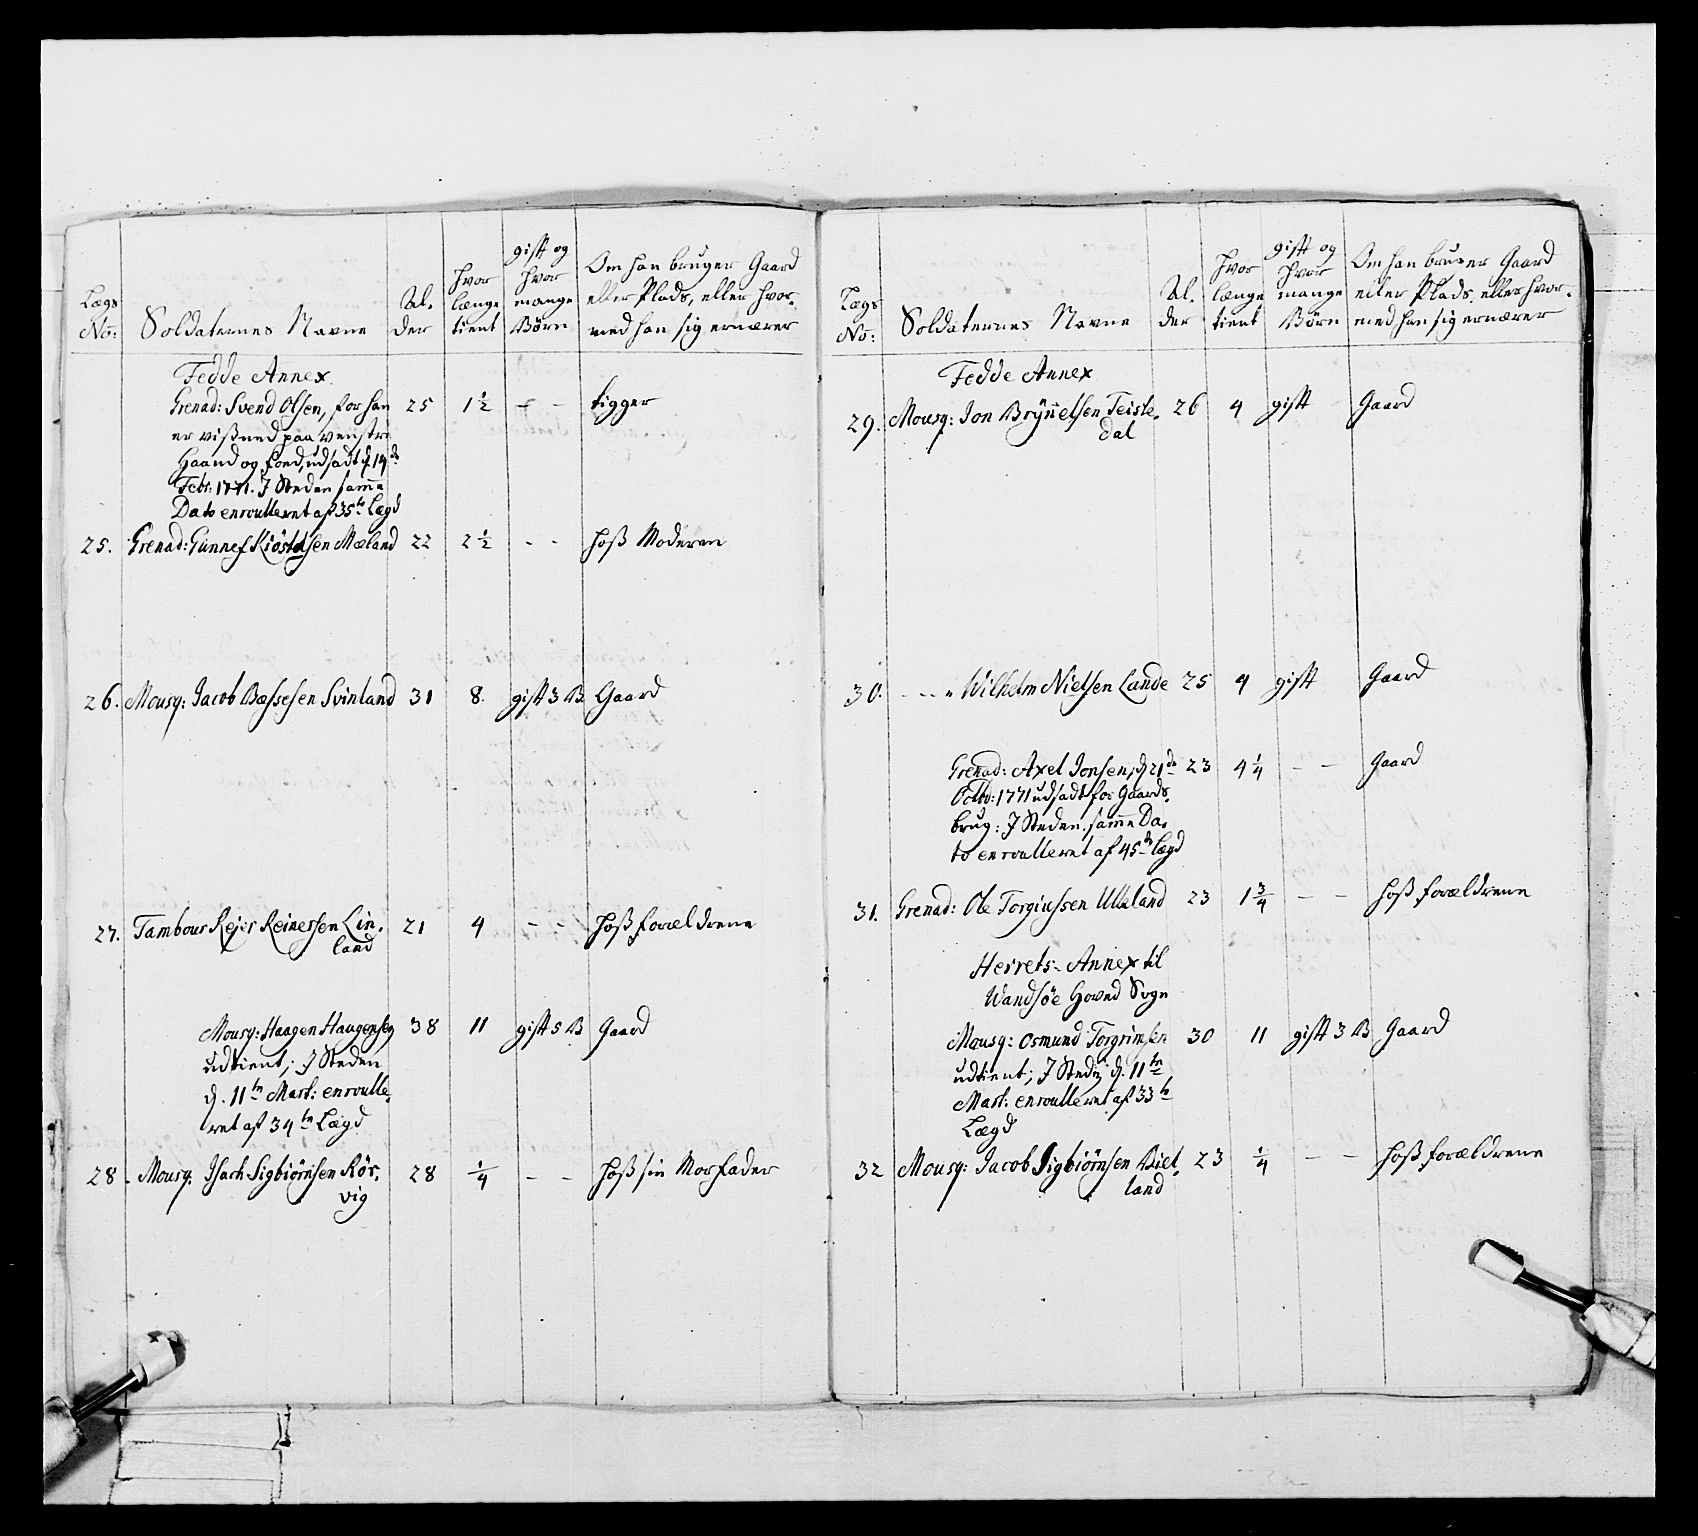 Lægs No: Soldaternes Navne Al- der hvor længe tient gift og hvor mange Börn Om han bruger Gaard eller Plads, eller hvor- med han sig ernærer
Fedde Annex
Grenad: Svend Olsen, for han 25 1 1/2 - - tigger
er vißned paa venstre
Haand og Foed, udsadt d. 14de
Febr: 1771. J Steden samme
Dato enroulleret af 35te Lægd
25. Grenad: Gunnef Kiöstelsen Mæland 22 2 1/2 - - hoß Moderen
26. Mousq: Jacob Bæssesen Svinland 31 8. gift 3 B Gaard
27. Tambour Rejer Reinersen Lin- 21 4 - - hoß forældrene
land
Mousq: Haagen Haagensen 38 11 gift 5 B Gaard
udtient; J Steden
d. 11te Mart: enroulle-
ret af 34te Lægd
28. Mousq: Isach Sigbiörnsen Rör- 28 1/4 - - hoß sin Morfader
vig
Lægs No: Soldaternes Navne Al- der hvor længe tient gift og hvor mange Börn Om han bruger Gaard eller Plads, eller hvor- med han sig ernærer
Fedde Annex
29. Mousq: Jon Brÿnelsen Feiste- 26 4 gift Gaard
dal
30. - - - " Wilhelm Nielsen Lande 25 4 gift Gaard
Grenad: Axel Jonsen, d. 21de 23 4 1/4 - - Gaard
Octbr: 1771 udsadt for Gaards-
brug: J Steden samme Da-
to enroulleret af 45de Lægd
31. Grenad: Ole Torgiussen Ulland 23 1 3/4 - - hoß forældrene
Herrets- Annex til
Wandsöe Hoved Sogn
Mousq: Osmund Torgrimsen 30 11 gift 3 B Gaard
udtient; J Steden d. 11te
Mart: enroulleret af 33te
Lægd
32 Mousq: Jacob Sigbiörnsen Birt- 23 1/4 - - hoß forældrene
land